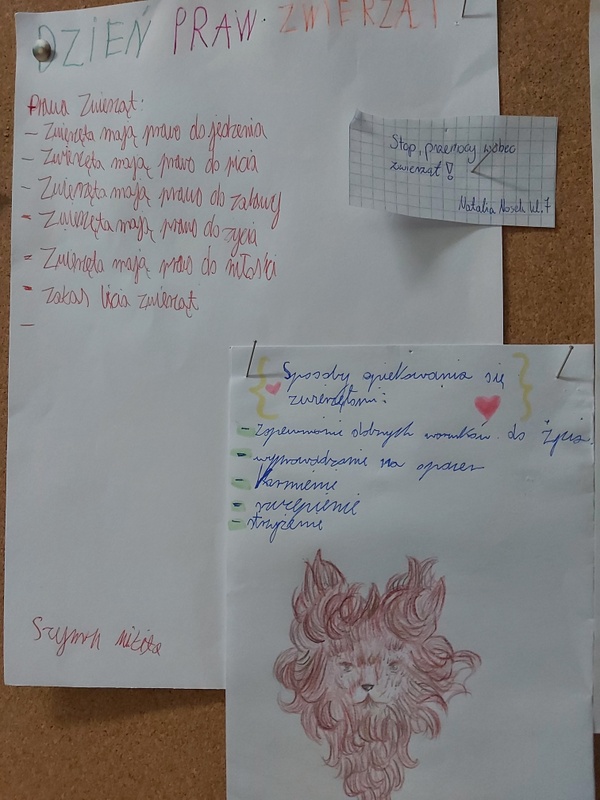 DZIEŃ PRAW ZWIERZĄT
Prawa Zwierząt:
- Zwierzęta mają prawo do jedzenia
- Zwierzęta mają prawo do picia
- Zwierzęta mają prawo do zabawy
- Zwierzęta mają prawo do życia
- Zwierzęta mają prawo do miłości
- zakaz bicia zwierząt
-
Szymon
Stop, przemocy wobec
zwierząt!
Natalia Nosek kl.7
Sposoby opiekowania się
zwierzętami:
- Zapewnienie dobrych warunków do życia
- wyprowadzanie na spacer
- Karmienie
- szczepienie
- strzyżenie